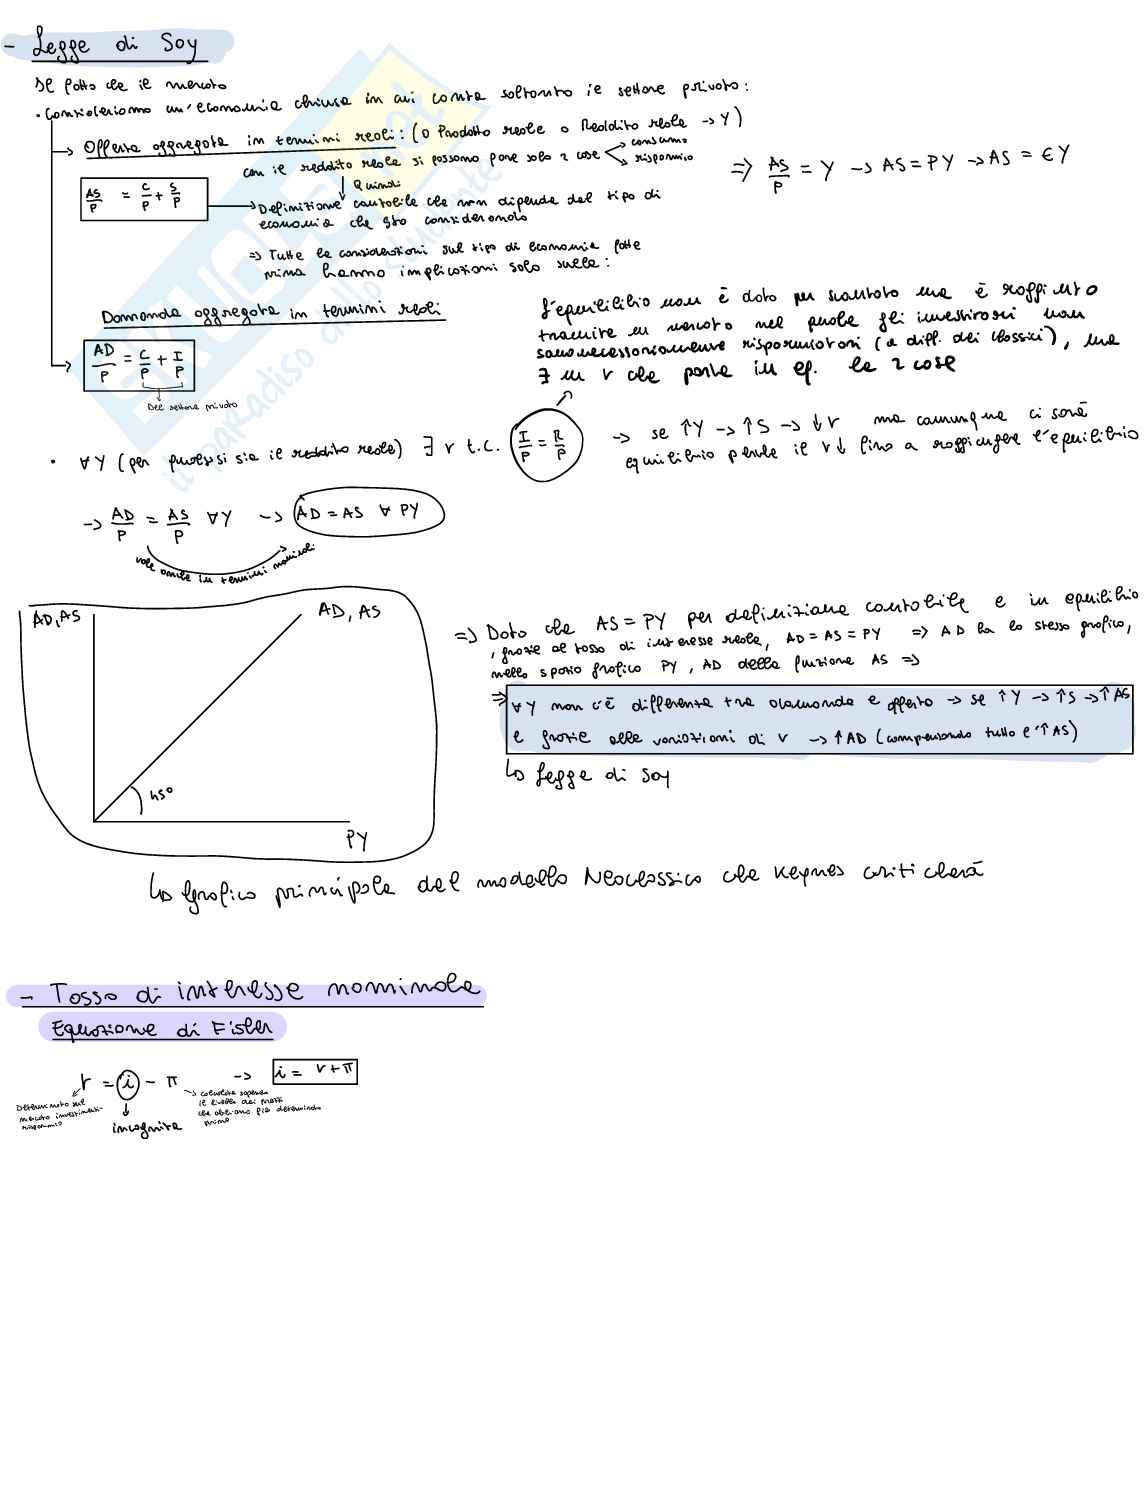 - Legge di Say
Del fatto che il mercato
· Consideriamo un'economia chiusa in cui conta soltanto il settore privato:
→ Offerta aggregata in termini reali: (o Prodotto reale o Reddito reale → Y)
con il reddito reale si possono fare solo 2 cose → consumo
→ risparmio
⇒ AS/P = Y → AS = PY → AS = €Y
AS/P = C/P + S/P
Quindi
→ Definizione contabile che non dipende dal tipo di
economia che sto considerando
⇒ Tutte le considerazioni sul tipo di economia fatte
prima hanno implicazioni solo sulla:
Domanda aggregata in termini reali
→ AD/P = C/P + I/P
Del settore privato
L'equilibrio non è dato per scontato ma è raggiunto
tramite un mercato nel quale gli investitori non
sono necessariamente risparmiatori (a diff. dei classici), ma
∃ un r che porta in eq. le 2 cose
· ∀ Y (per qualsiasi sia il reddito reale) ∃ r t.c. I/P = R/P
→ se ↑Y → ↑S → ↓r ma comunque ci sarà
equilibrio perché il r↓ fino a raggiungere l'equilibrio
→ AD/P = AS/P ∀Y → AD = AS ∀ PY
vale anche in termini nominali
AD, AS
AD, AS
45°
PY
⇒ Dato che AS = PY per definizione contabile e in equilibrio
, grazie al tasso di interesse reale, AD = AS = PY ⇒ AD ha lo stesso grafico,
nello spazio grafico PY, AD della funzione AS ⇒
⇒ ∀Y non c'è differenza tra domanda e offerta → se ↑Y → ↑S → ↑AS
e grazie alle variazioni di r → ↑AD (compensando tutto l'↑AS)
↳ Legge di Say
↳ Grafico principale del modello Neoclassico che Keynes criticherà
- Tasso di interesse nominale
Equazione di Fisher
r = i - π → i = r + π
Determinato sul
mercato investimenti-
risparmio
incognita
→ calcolata sapendo
il livello dei prezzi
che abbiamo già determinato
prima